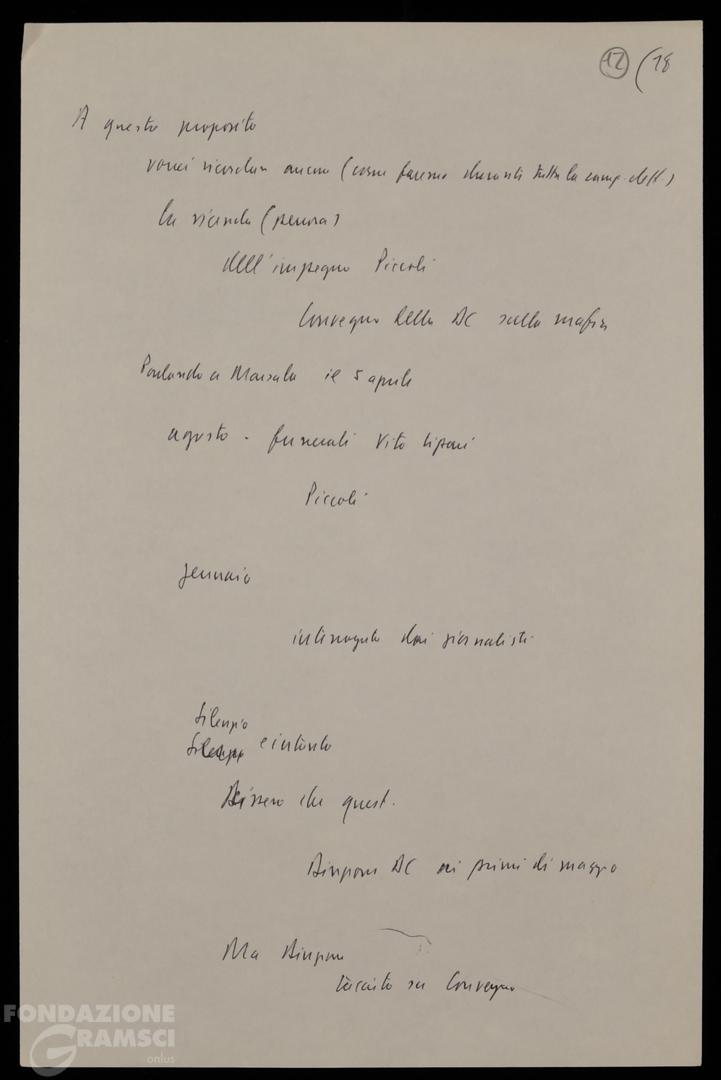 12 (18
A questo proposito
vorrei ricordare ancora (come faremo durante tutta la camp. elett)
la vicenda (penosa)
dell'impegno Piccoli
Convegno della DC sulla mafia
Parlando a Marsala il 5 aprile
agosto - funerali Vito Lipari
Piccoli
gennaio
interrogato dai giornalisti
Silenzio
e intanto
Dissero che quest.
Direzione DC ai primi di maggio
Ma Direzione
taciuto su Convegno
FONDAZIONE
GRAMSCI
onlus